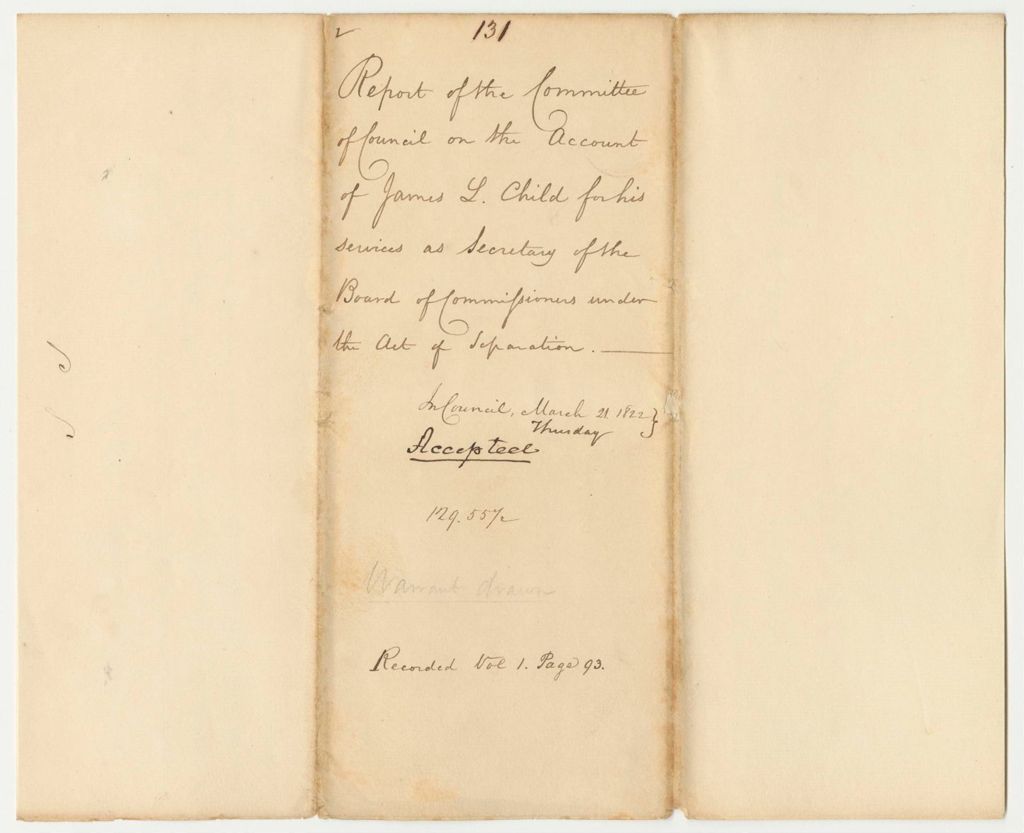 131
Report of the Committee
of Council on the Account
of James L. Child for his
services as Secretary of the
Board of Commissioners under
the Act of Separation.
In Council, March 21. 1822 }
Thursday
Accepted
Warrant drawn
Recorded Vol 1. Page 93.